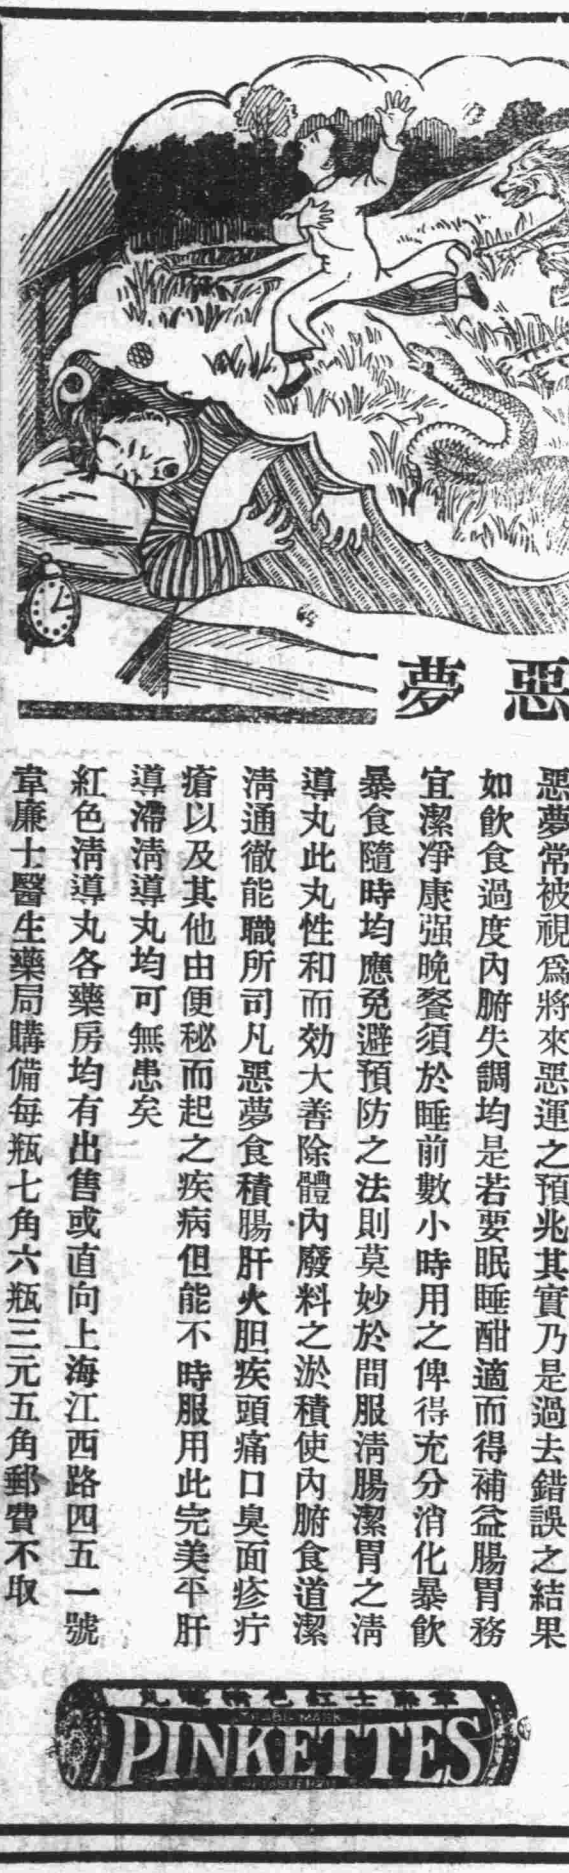 惡夢
惡夢常被視爲將來惡運之預兆其實乃是過去錯誤之結果
如飲食過度內腑失調均是若要眠睡酣適而得補益腸胃務
宜潔凈康强晚餐須於睡前數小時用之俾得充分消化暴飲
暴食隨時均應免避預防之法則莫妙於間服淸腸潔胃之淸
導丸此丸性和而効大善除體內廢料之淤積使內腑食道潔
淸通徹能職所司凡惡夢食積腸肝火胆疾頭痛口臭面疹疔
瘡以及其他由便秘而起之疾病但能不時服用此完美平肝
導滯淸導丸均可無患矣
紅色淸導丸各藥房均有出售或直向上海江西路四五一號
韋廉士醫生藥局購備每瓶七角六瓶三元五角郵費不取
韋廉士紅色淸導丸
TRADE MARK
PINKETTES